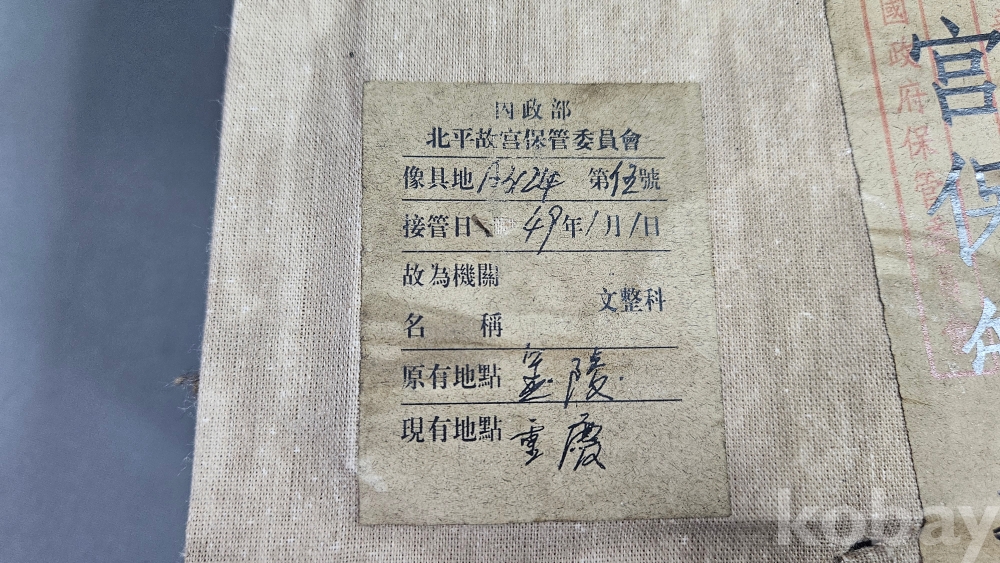 内政部
北平故宫保管委員會
像具地 A3124 第伍號
接管日 49年1月1日
故為機關
文整科
名稱
原有地點 金陵
現有地點 重慶
國政府保管
宫保
kobay